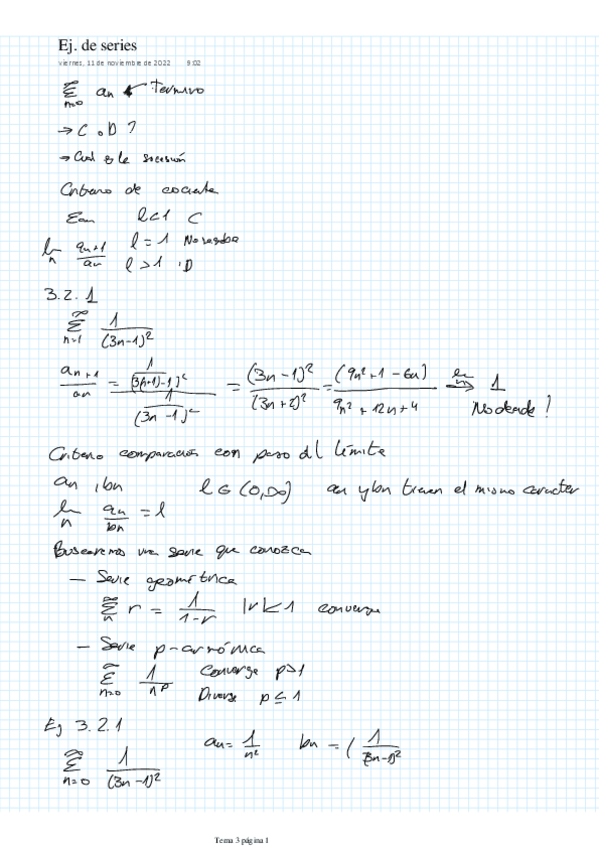 Ej. de series
viernes, 11 de noviembre de 2022 9:02
∞ Σ n=0 an ← Termino
→ C o D ?
→ Cual es la sucesión
Criterio de cociente
Σan l<1 C
lim n an+1/an l = 1 No se sabe
l > 1 D
3.2.1
∞ Σ n=1 1/(3n-1)²
an+1/an = (1/(3(n+1)-1)²)/(1/(3n-1)²) = (3n-1)²/(3n+2)² = (9n²+1-6n)/(9n²+12n+4) → lim n 1
No decide!
Criterio comparación con paso del límite
an, bn l ∈ (0,∞) an y bn tienen el mismo caracter
lim n an/bn = l
Buscaremos una serie que conozca
— Serie geométrica
∞ Σ n r = 1/(1-r) |r|<1 converge
— Serie p-armónica
∞ Σ n=0 1/n^p Converge p>1
Diverge p ≤ 1
Ej 3.2.1
∞ Σ n=0 1/(3n-1)² an = 1/n² bn = ( 1/(3n-1)²
Tema 3 página 1